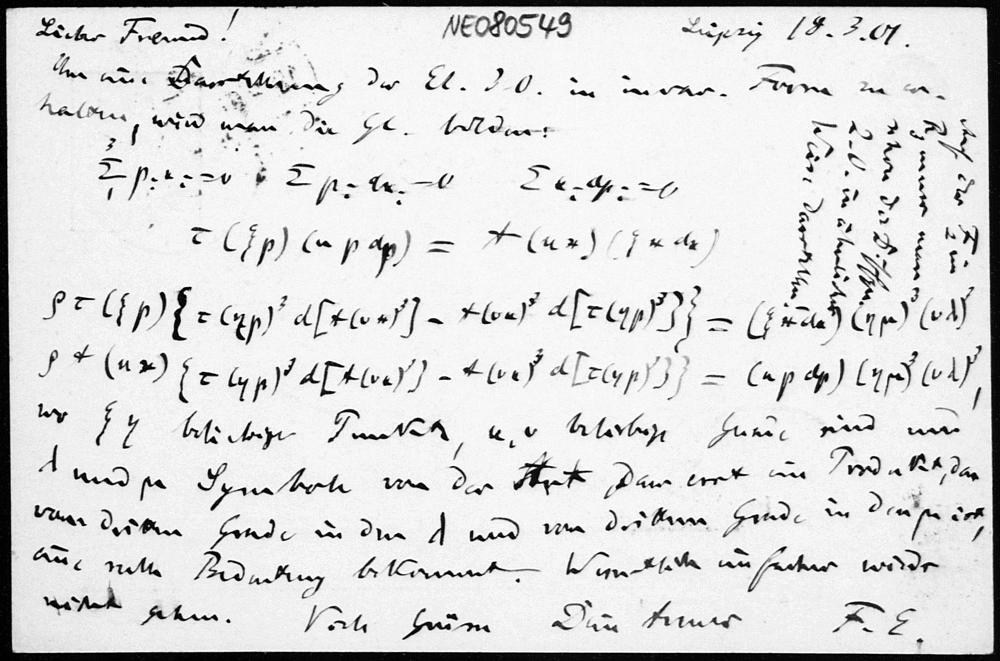 NE080549
Lieber Freund! Leipzig 18.3.01.
Um eine Darstellung der El. 3 O. in invar. Form zu er-
halten, wird man die Gl. bilden:
3 Σ 1 p_i x_i = 0 Σ p_i dx_i = 0 Σ x_i dp_i = 0
τ (ξp) (u p dp) = t (ux) (ξ x dx)
ρ τ (ξp) {τ(ηp)³ d[t(vx)³] − t(vx)³ d[τ(ηp)³]} = (ξ x dx) (ημ)³ (vλ)³
ρ t (ux) {τ(ηp)³ d[t(vx)³] − t(vx)³ d[τ(ηp)³]} = (u p dp) (ημ)³ (vλ)³,
wo ξ η beliebige Punkte, u, v beliebige Gerade sind und
λ und μ Symbole von der Art, dass erst ein Produkt, das
vom dritten Grade in den λ und vom dritten Grade in den μ ist,
eine reelle Bedeutung bekommt. Wesentlich einfacher wirds
nicht gehen. Viele Grüsse Dein treuer F. E.
Auf der
man
schon die
2. O. in ähnlicher
Weise darstellen